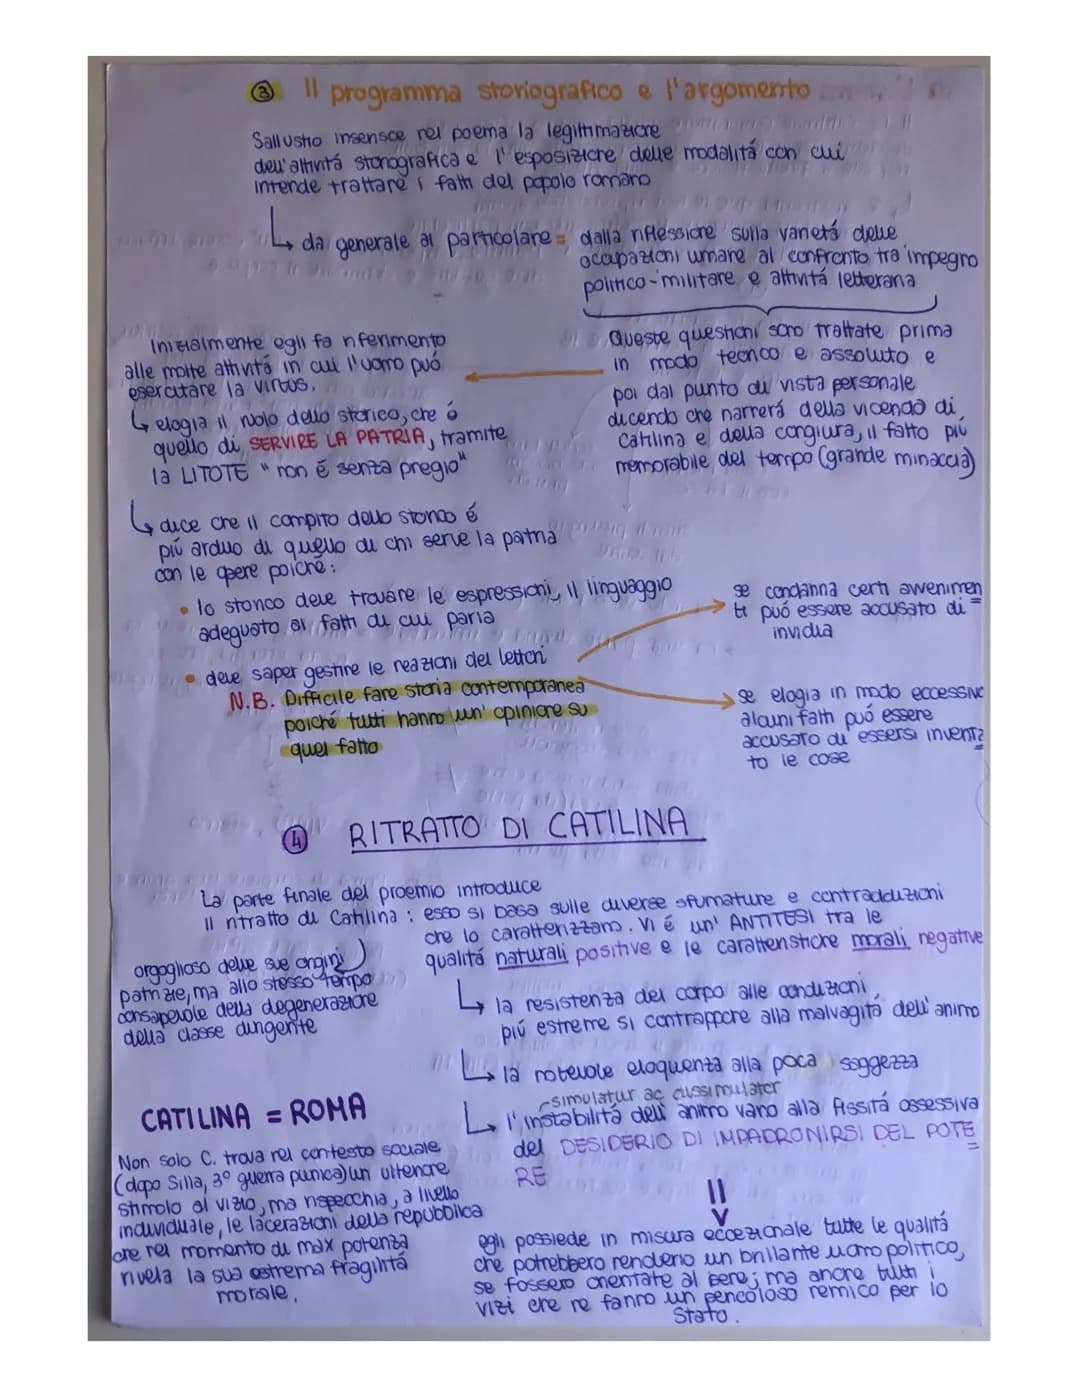 ③ Il programma storiografico e l'argomento
Sallustio inserisce nel poema la legittimazione
dell'attività storiografica e l'esposizione delle modalità con cui
intende trattare i fatti del popolo romano
da generale al particolare = dalla riflessione sulla varietà delle
occupazioni umane al confronto tra impegno
politico-militare e attività letteraria
Queste questioni sono trattate prima
in modo teorico e assoluto e
poi dal punto di vista personale
dicendo che narrerà della vicenda di
Catilina e della congiura, il fatto più
memorabile del tempo (grande minaccia)
Inizialmente egli fa riferimento
alle molte attività in cui l'uomo può
esercitare la virtus.
elogia il ruolo dello storico, che è
quello di SERVIRE LA PATRIA, tramite
la LITOTE "non é senza pregio"
dice che il compito dello storico é
più arduo di quello di chi serve la patria
con le opere poiché:
• lo storico deve trovare le espressioni, il linguaggio
adeguato ai fatti di cui parla
• deve saper gestire le reazioni dei lettori
se condanna certi avvenimen
ti può essere accusato di
invidia
se elogia in modo eccessivo
alcuni fatti può essere
accusato di essersi inventa
to le cose
N.B. Difficile fare storia contemporanea
poiché tutti hanno un'opinione su
quel fatto
④ RITRATTO DI CATILINA
La parte finale del proemio introduce
il ritratto di Catilina: esso si basa sulle diverse sfumature e contradduzioni
che lo caratterizzano. Vi é un'ANTITESI tra le
qualità naturali positive e le caratteristiche morali negative
orgoglioso delle sue origini
patrizie, ma allo stesso tempo
consapevole della degenerazione
della classe dirigente
la resistenza del corpo alle condizioni
più estreme si contrappone alla malvagità dell'animo
la notevole eloquenza alla poca saggezza
simulatur ac dissimulator
l'instabilità dell'animo vario alla fissità ossessiva
del DESIDERIO DI IMPADRONIRSI DEL POTE
RE
CATILINA = ROMA
Non solo C. trova nel contesto sociale
(dopo Silla, 3° guerra punica) un ulteriore
stimolo al vizio, ma rispecchia, a livello
individuale, le lacerazioni della repubblica
che nel momento di max potenza
rivela la sua estrema fragilità
morale.
egli possiede in misura eccezionale tutte le qualità
che potrebbero renderlo un brillante uomo politico,
se fossero orientate al bene; ma anche tutti i
vizi che ne fanno un pericoloso nemico per lo
Stato.